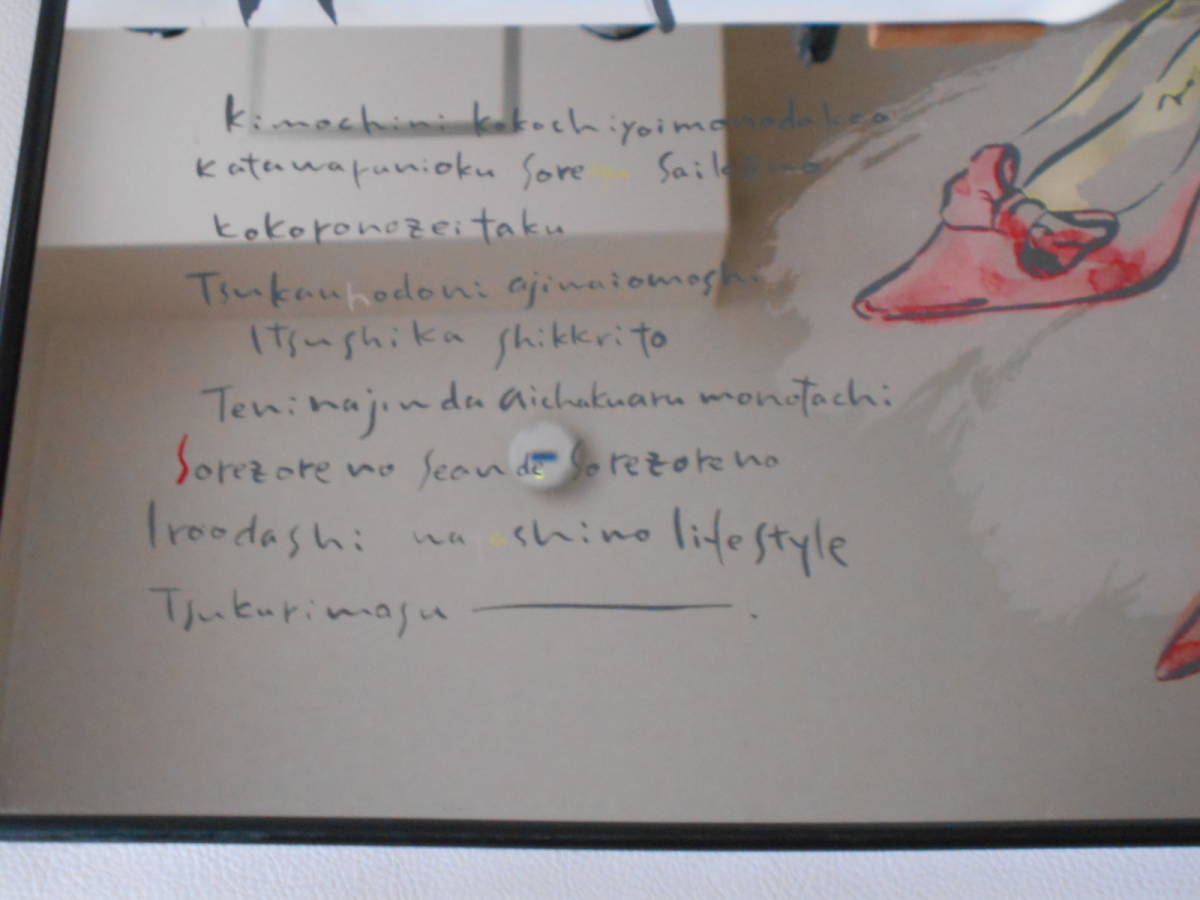 Kimochini kokochiyoimonodakeo
katawaranioku Sorewa Saikōno
kokoronozeitaku
Tsukauhodoni ajinaiomoshi
Itsushika shikkrito
Teni najinda aichakuaru monotachi
Sorezore no Seande Sorezoreno
Iroodashi washino lifestyle
Tsukurimasu ———.